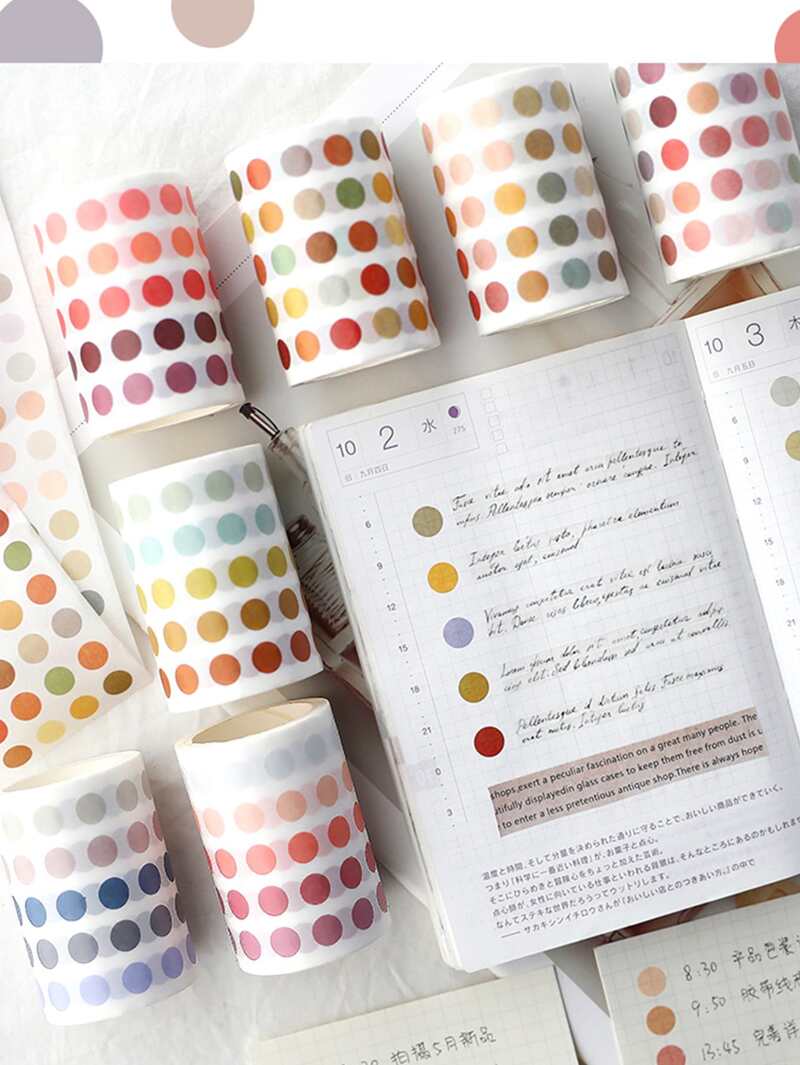 10 2 水
旧 九月四日 275
10 3 木
旧 九月五日
6
9
12
15
18
21
0
3
6
9
12
15
18
21
Fusce vitae odio sit amet arcu pellentesque
Pellentesque semper ornare congue. Integer
Integer luctus justo, pharetra elementum
auctor eget, euismod
Vivamus consectetur erat vitae est lacinia
Lorem ipsum dolor sit amet consectetur
elit. Sed bibendum sed arcu ut convallis
Pellentesque id dictum felis. Fusce maximus
erat metus. Integer luctus
shops,exert a peculiar fascination on a great many people. The
utifully displayedin glass cases to keep them free from dust is
to enter a less pretentious antique shop.There is always hope
温度と時間、そして分量を決められた通りに守ることで、おいしい商品ができていく。
つまり「科学に一番近い料理」が、お菓子と点心。
そこにひらめきと冒険心をちょっと加えた芸術。
点心師が、女性に向いている仕事といわれる背景は、そんなところにあるのかもしれませ
なんてステキな世界だろうってウットリします。
――サカキシンイチロウさんが『おいしい店とのつきあい方。』の中で
8:30 产品包装
9:50 胶带线
13:45 完善详
拍摄5月新品